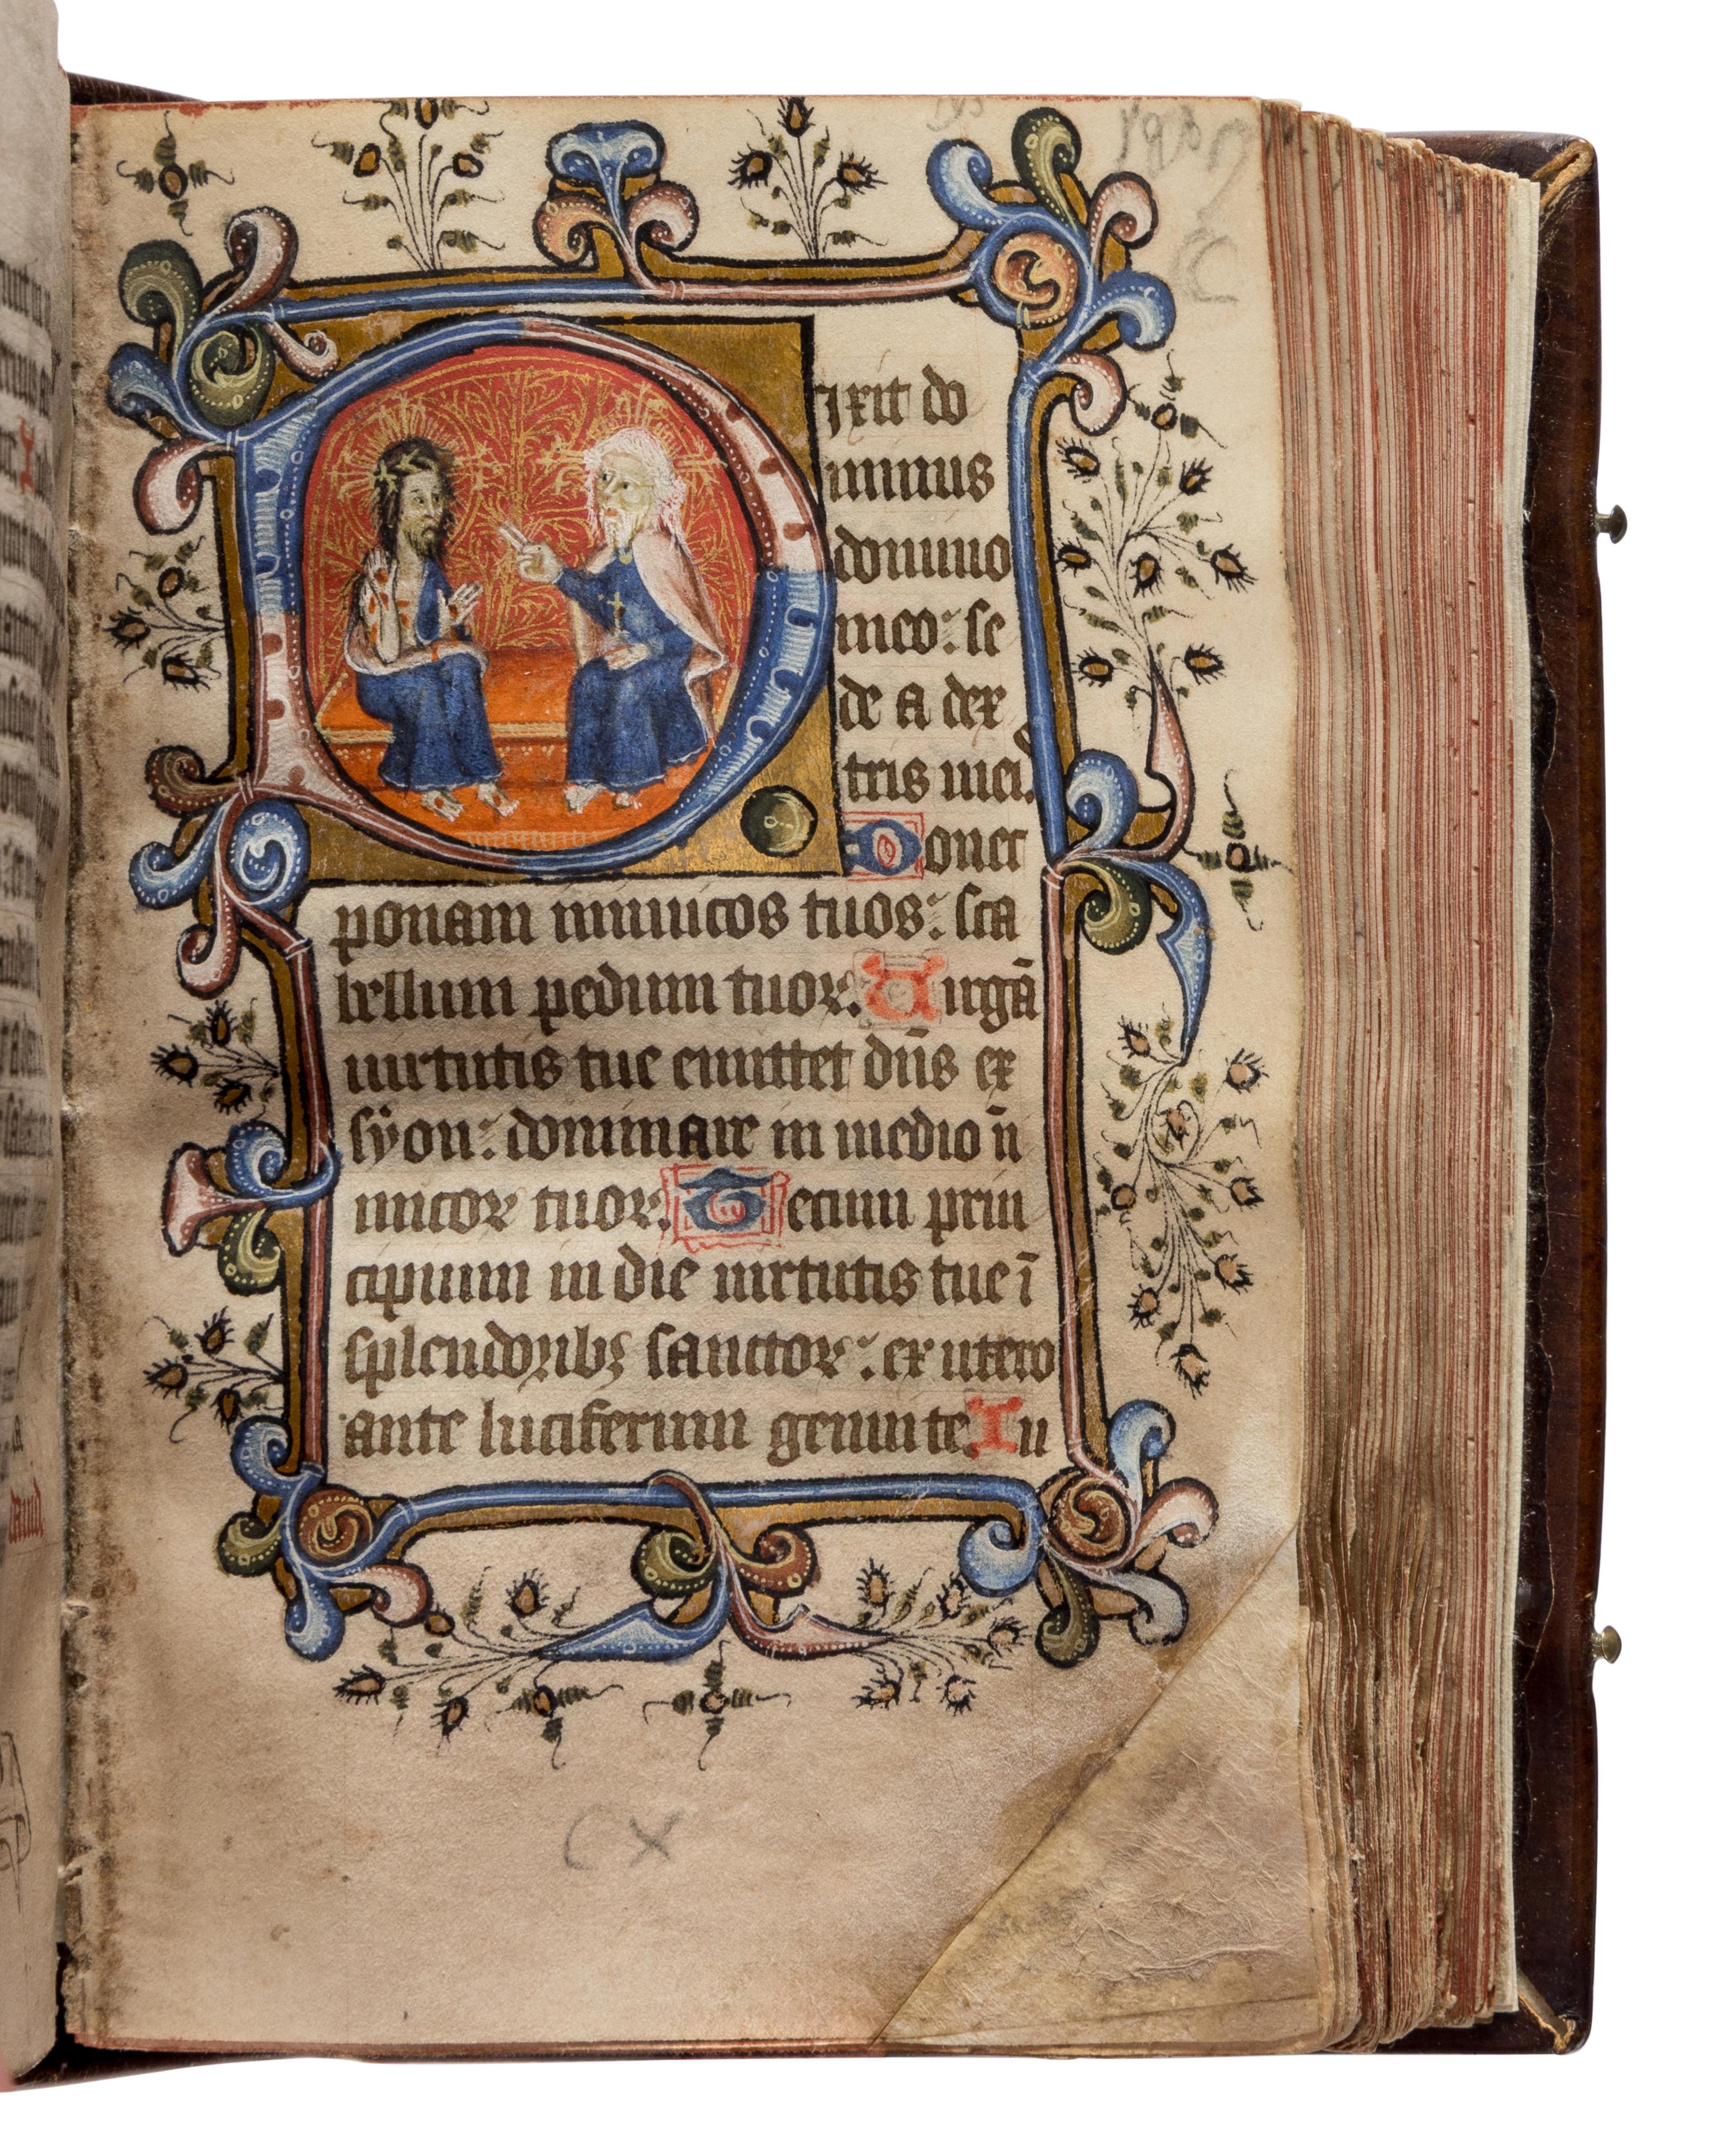 Dixit do
minus
domino
meo: se
de a dex
tris mei.
Donec
ponam inimicos tuos: sca
bellum pedum tuoꝝ. Uirgā
uirtutis tue emittet dn̄s ex
syon: dominare in medio in̄
imicoꝝ tuoꝝ. Tecum prin
cipium in die uirtutis tue ī
splendoribꝫ sanctoꝝ: ex utero
ante luciferum genui te. Iu
CX